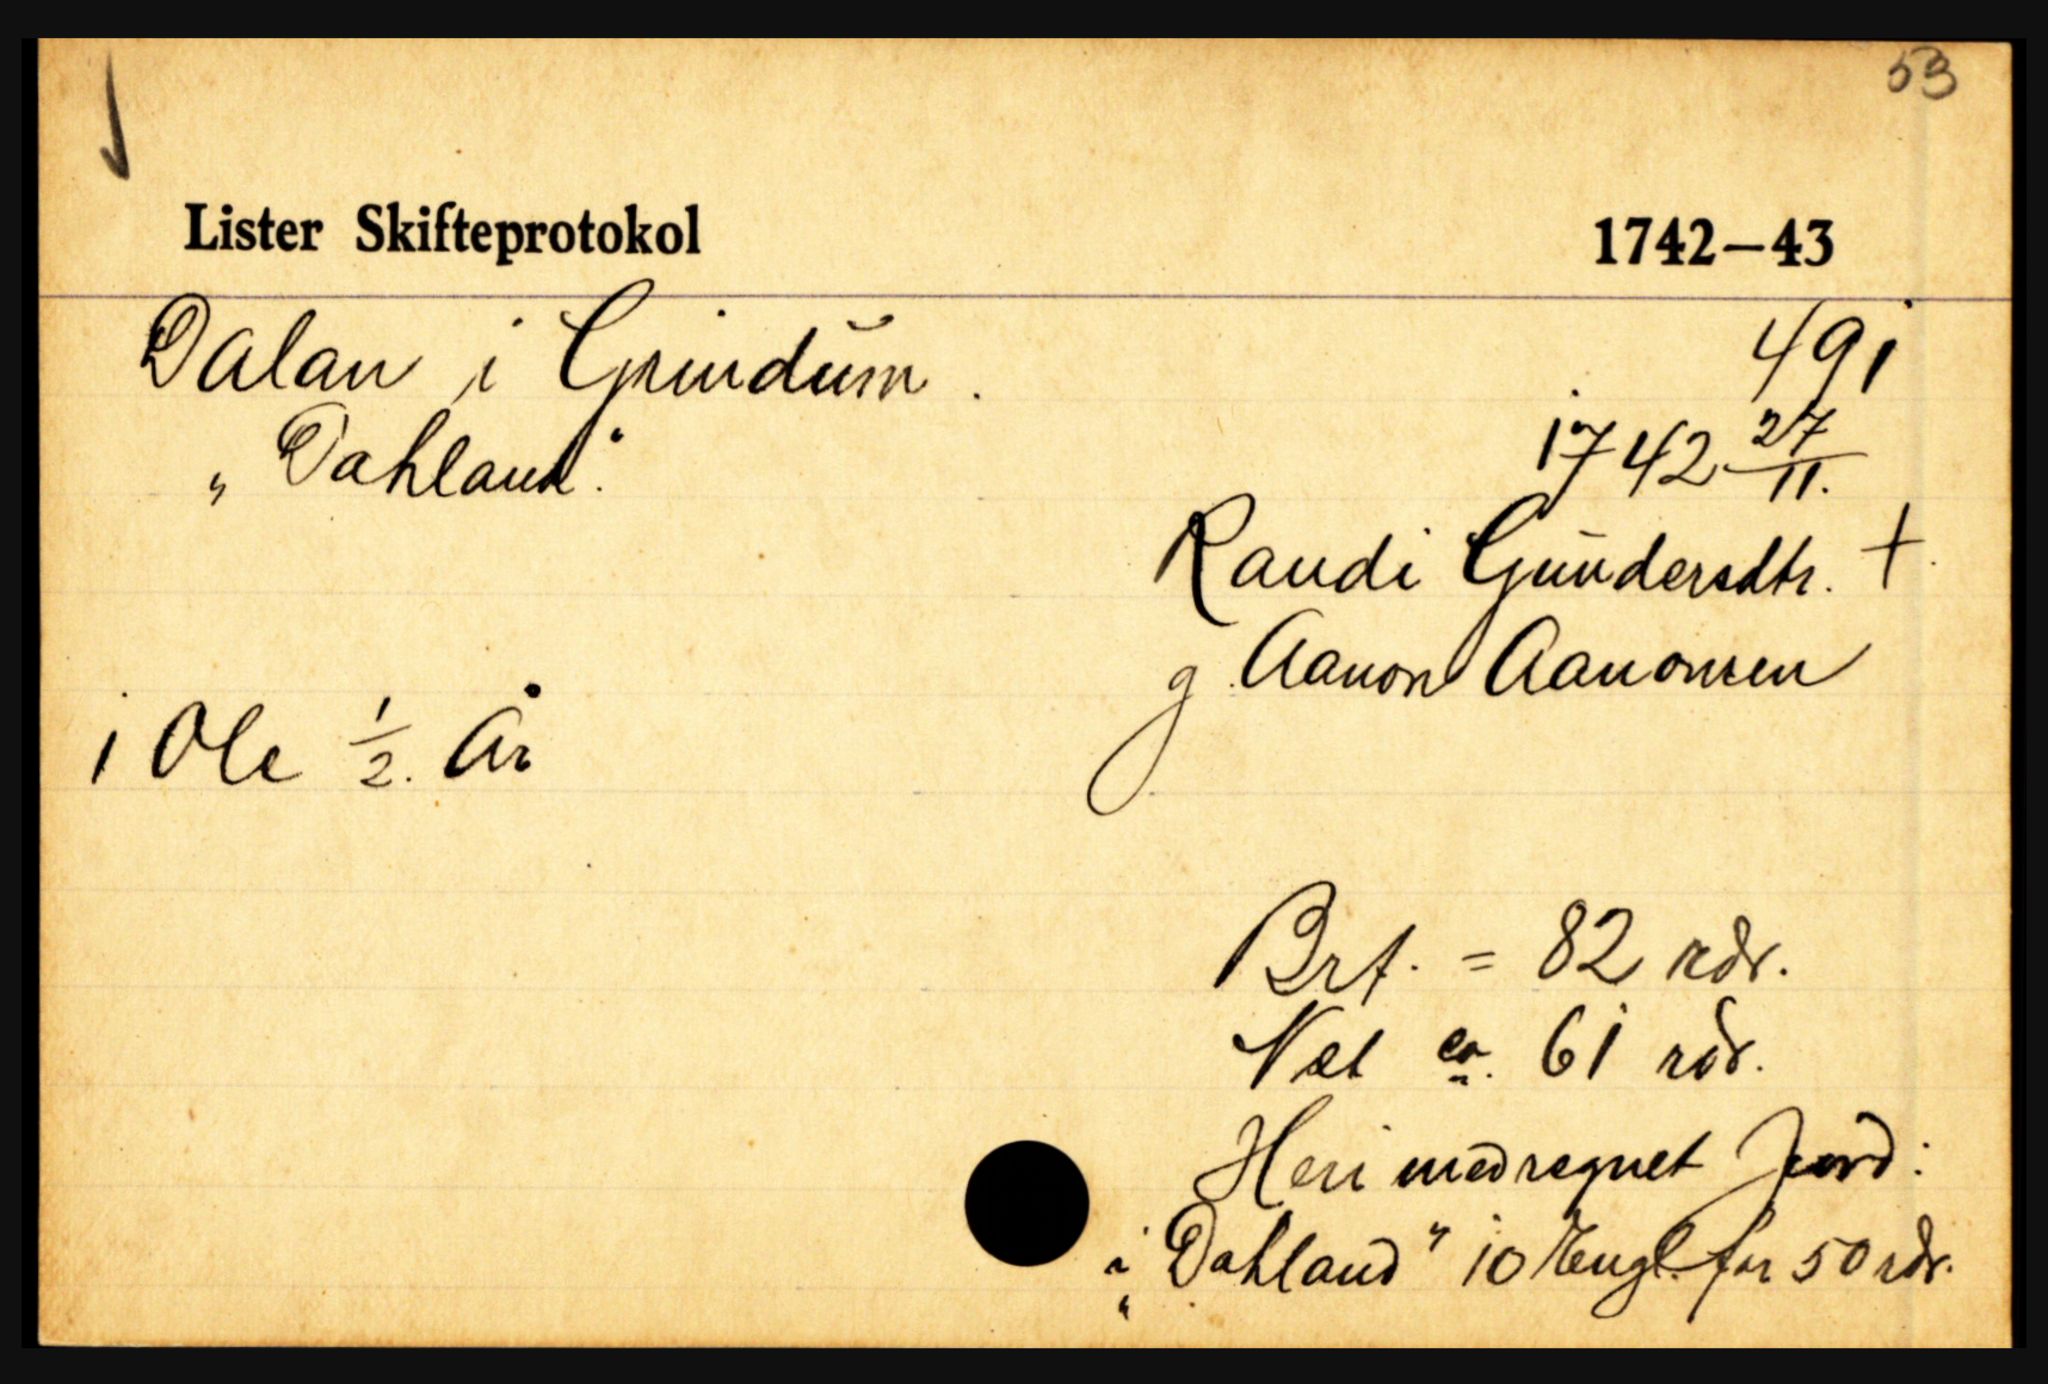 53
Lister Skifteprotokol 1742–43
Dalan i Grindum. 491
„Dahland“. 1742 27/11.
Randi Gundersdtr. +
g. Aanon Aanonsen
1 Ole 1/2 År
Brt. = 82 rdr.
Net ca. 61 rdr.
Heri medregnet Jord:
i „Dahland“ 10 Engl. for 50 rdr.